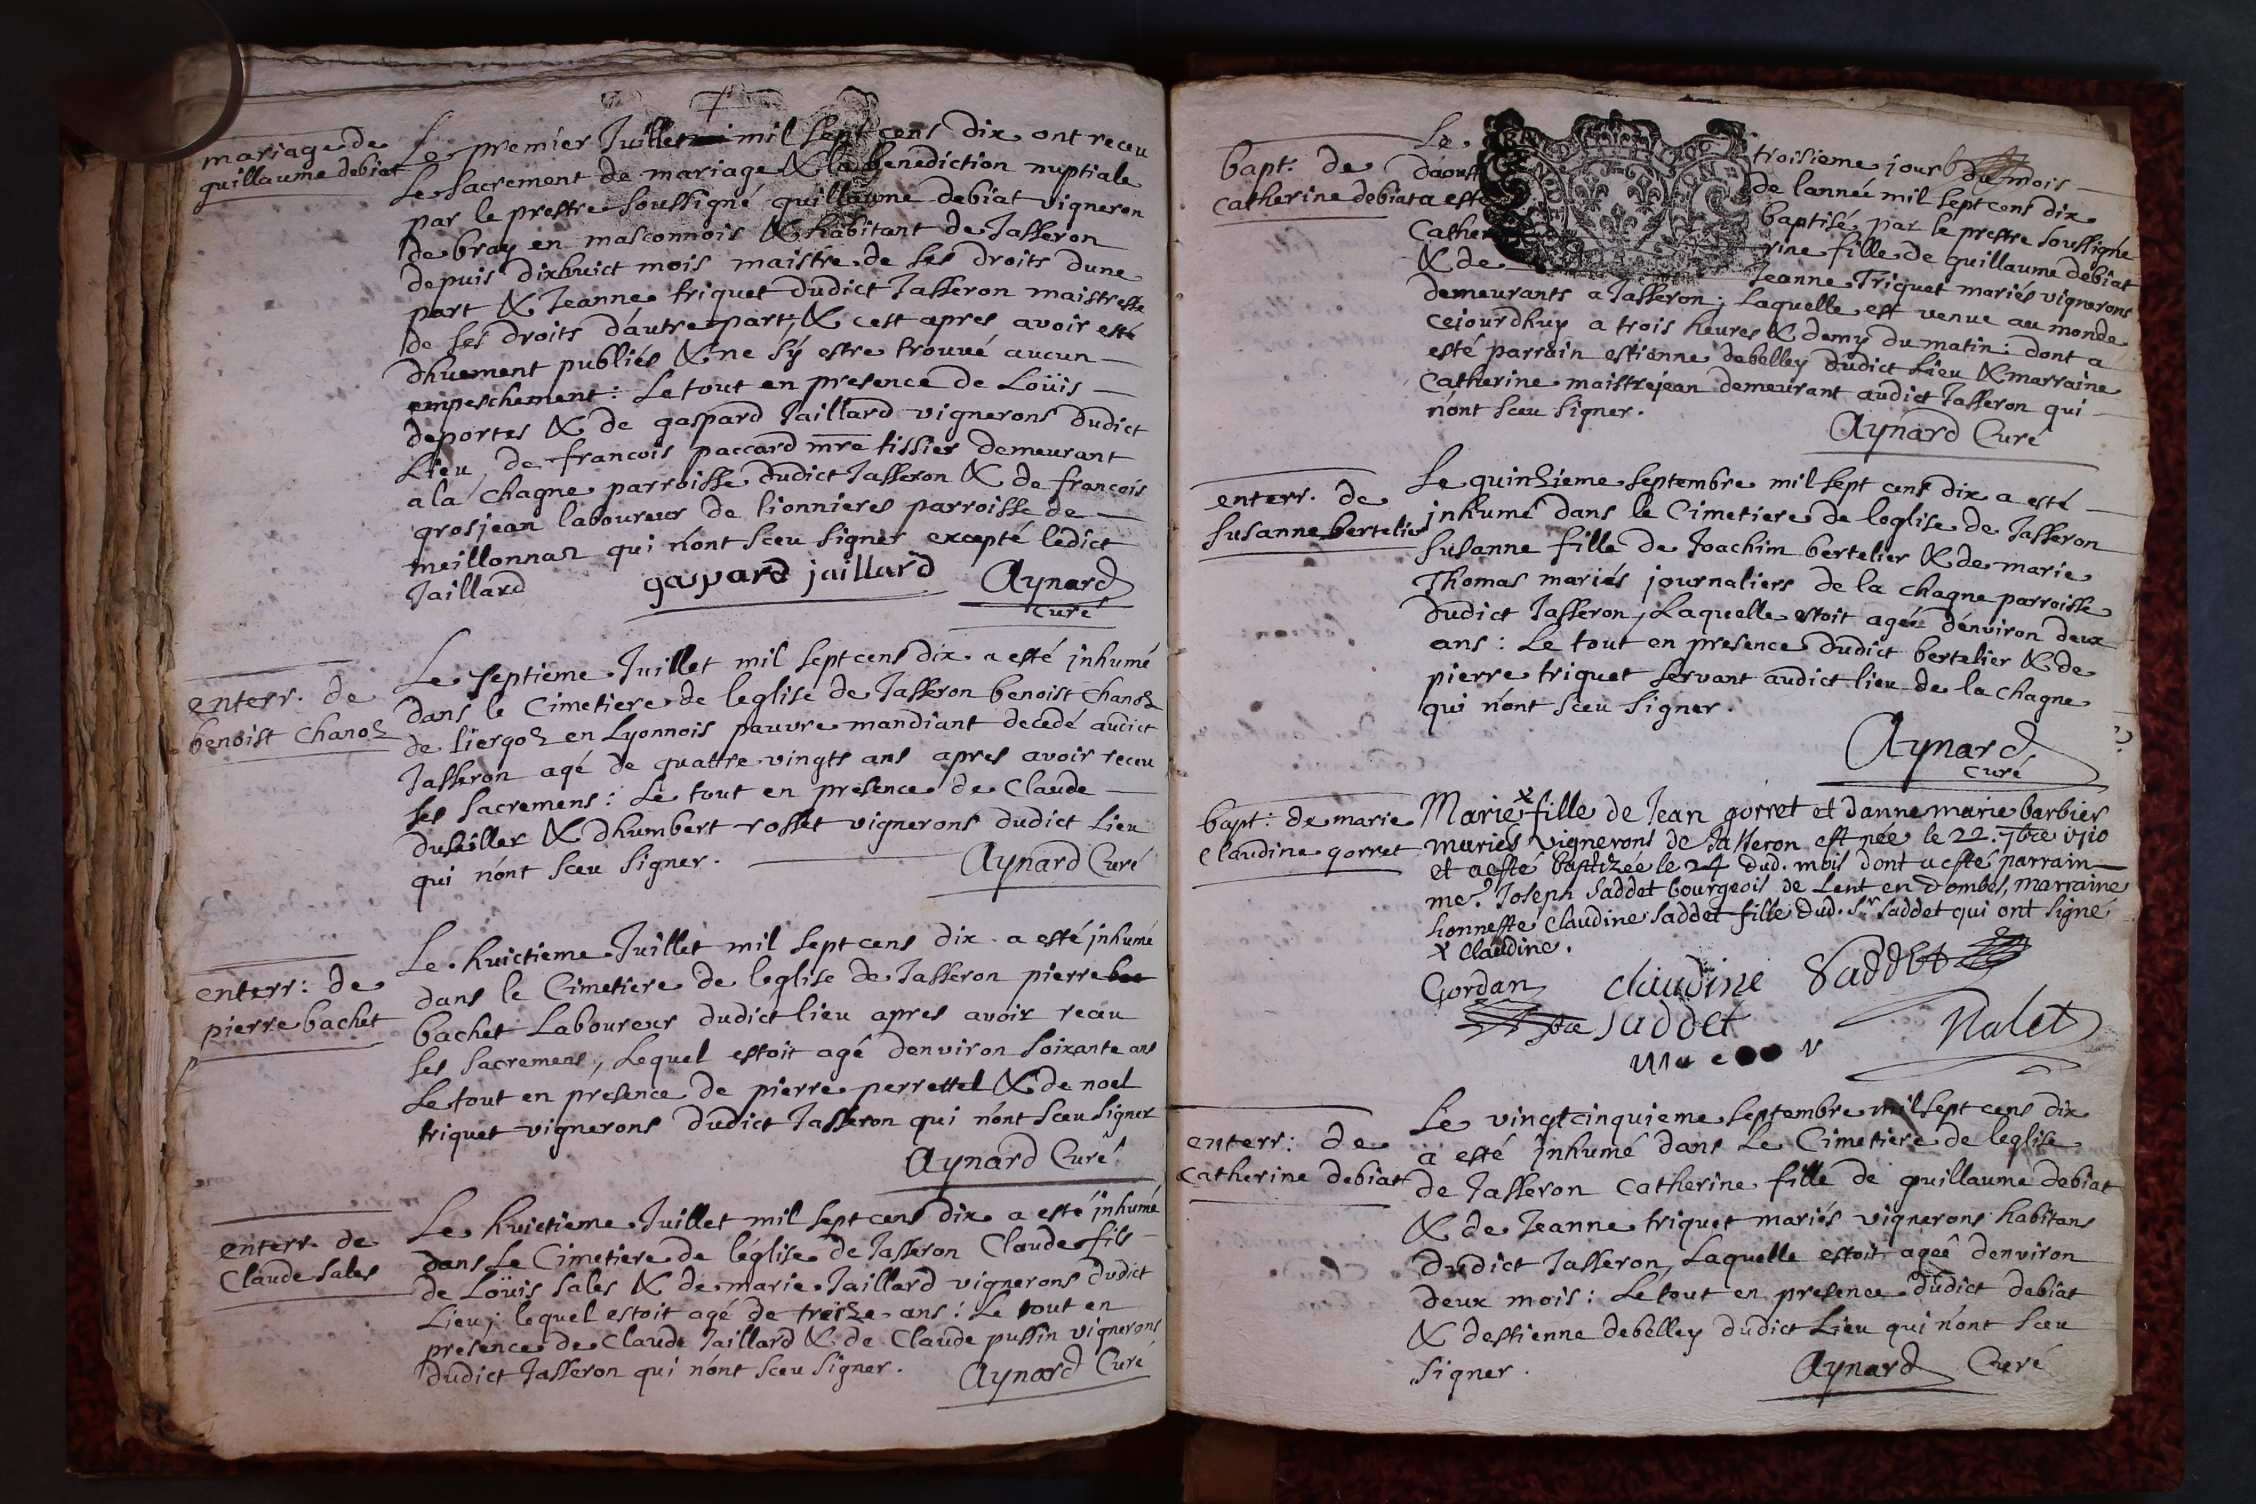 mariage de
guillaume debiat
Le premier Juillet mil sept cens dix ont receu
le sacrement de mariage & la benediction nuptiale
par le prestre soussigné guillaume debiat vigneron
de bray en masconnois & habitant de Jasseron
depuis dixhuict mois maistre de ses droits dune
part & Jeanne triquet dudict Jasseron maistresse
de ses droits d'autre part, & cest apres avoir esté
dhuement publiés & ne s'y estre trouvé aucun
empeschement : Le tout en presence de Loüis
deportes & de gaspard Jaillard vignerons dudict
Lieu de francois paccard mre tissier demeurant
a la chagne parroisse dudict Jasseron & de francois
grosjean laboureur de lionnieres parroisse de
meillonnaz qui n'ont sceu signer excepté ledict
Jaillard gaspard jaillard Aynard
curé
enterr. de
benoist chanoz
Le septieme Juillet mil sept cens dix a esté inhumé
dans le Cimetiere de leglise de Jasseron benoist Chanoz
de liergoz en Lyonnois pauvre mandiant decedé audict
Jasseron agé de quattre vingts ans apres avoir receu
ses sacremens : Le tout en presence de Claude
duseiller & dhumbert rosset vignerons dudict Lieu
qui n'ont sceu signer. Aynard Curé
enterr : de
pierre bachet
Le huictieme Juillet mil sept cens dix a esté inhumé
dans le Cimetiere de leglise de Jasseron pierre
bachet Laboureur dudict lieu apres avoir receu
ses sacremens ; Lequel estoit agé denviron soixante ans
Le tout en presence de pierre perrettel & de noel
triquet vignerons dudict Jasseron qui n'ont sceu signer
Aynard Curé
enterr. de
Claude sales
Le huictieme Juillet mil sept cens dix a esté inhumé
dans Le Cimetiere de léglise de Jasseron Claude fils
de Loüis sales & de marie Jaillard vignerons dudict
Lieu ; lequel estoit agé de treize ans : Le tout en
presence de Claude Jaillard & de Claude pussin vignerons
dudict Jasseron qui n'ont sceu signer. Aynard Curé
bapt : de
catherine debiat
Le troisieme jour du mois
d'aoust de lannée mil sept cens dix
a esté baptisé par le prestre soussigné
Catherine fille de guillaume debiat
& de Jeanne Triquet mariés vignerons
demeurants a Jasseron ; Laquelle est venue au monde
cejourdhuy a trois heures & demy du matin : dont a
esté parrain estienne debelley dudict Lieu & marraine
Catherine maistrejean demeurant audict Jasseron qui
n'ont sceu signer.
Aynard Curé
enterr. de
susanne bertelier
Le quinzieme septembre mil sept cens dix a esté
inhumé dans le Cimetiere de leglise de Jasseron
susanne fille de Joachim bertelier & de marie
Thomas mariés journaliers de la chagne parroisse
dudict Jasseron, Laquelle estoit agée d'environ deux
ans : Le tout en presence dudict bertelier & de
pierre triquet servant audict lieu de la chagne
qui n'ont sceu signer.
Aynard
curé
bapt : de marie
claudine gorret
Marie x fille de Jean gorret et danne marie barbier
mariés vignerons de Jasseron est née le 22. 7bre 1710
et a esté baptizée le 24 dud. mois dont a esté parrain
me. Joseph saddet bourgeois de Lent en dombes, marraine
honneste Claudine saddet fille dud. sr saddet qui ont signé
x claudine.
Gordan claudine Saddet
saddet Nalet
enterr : de
catherine debiat
Le vingtcinquieme septembre mil sept cens dix
a esté inhumé dans Le Cimetiere de leglise
de Jasseron catherine fille de guillaume debiat
& de Jeanne triquet mariés vignerons habitans
dudict Jasseron, Laquelle estoit ageé denviron
deux mois : Le tout en presence dudict debiat
& destienne debelley dudict Lieu qui n'ont sceu
signer. Aynard Curé